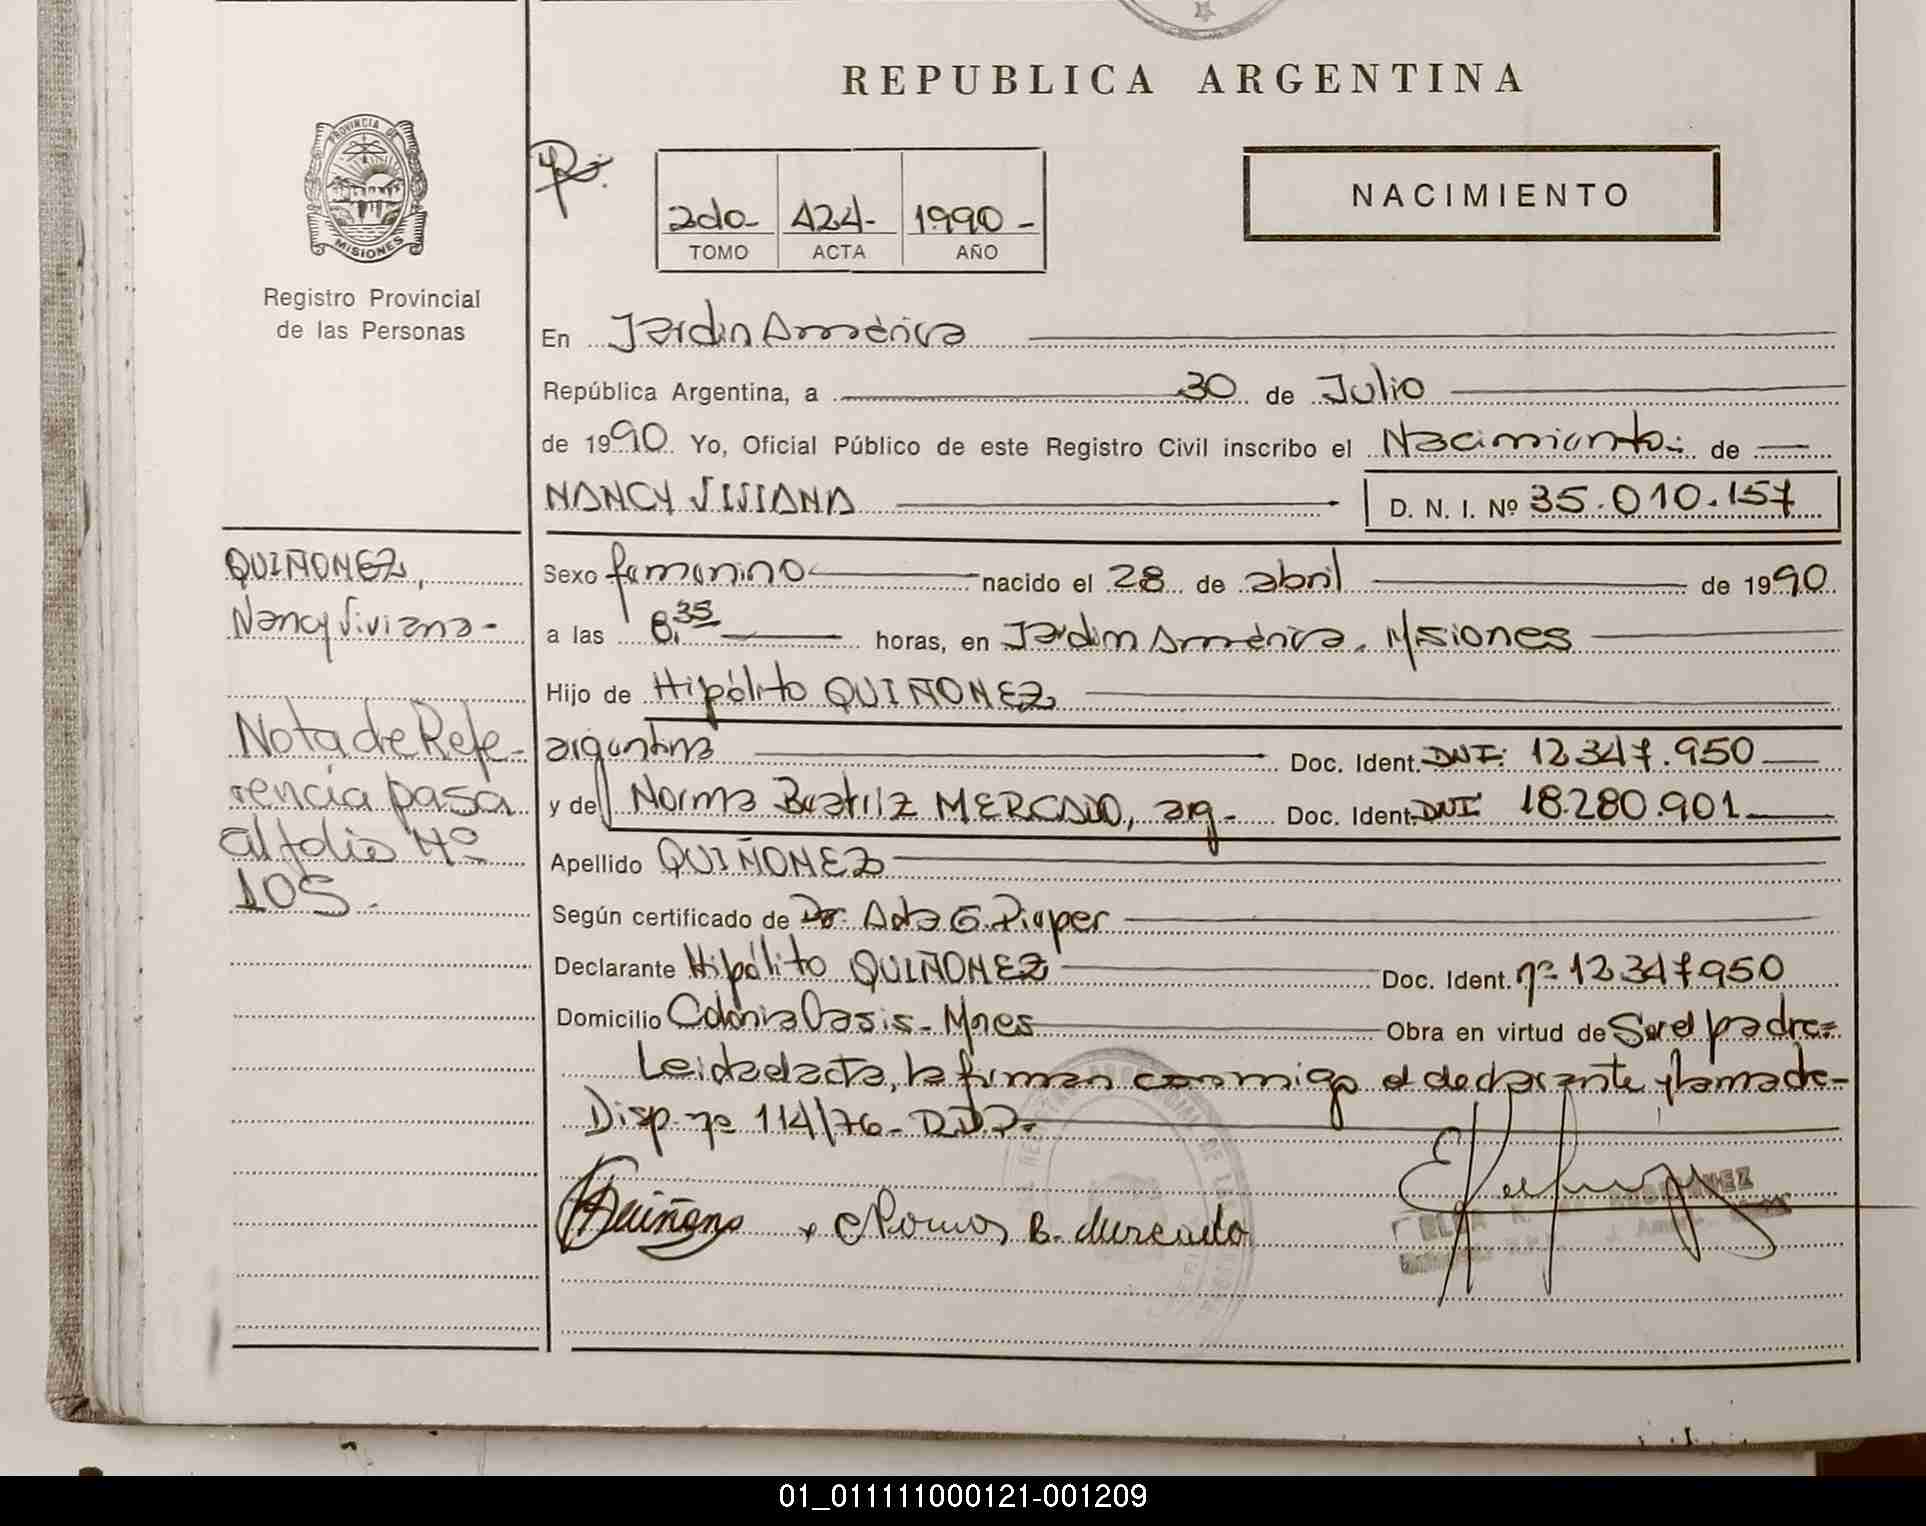 REPUBLICA ARGENTINA
PROVINCIA DE
MISIONES
Registro Provincial
de las Personas
2do- 424- 1990-
TOMO ACTA AÑO
NACIMIENTO
En Jardin América
República Argentina, a 30 de Julio
de 1990. Yo, Oficial Público de este Registro Civil inscribo el Nacimiento- de
NANCY VIVIANA D. N. I. Nº 35.010.157
QUIÑONEZ,
Nancy Viviana-
Nota de Refe-
rencia pasa
al folio Nº
105.-
Sexo femenino nacido el 28 de abril de 1990
a las 8.35 horas, en Jardin América, Misiones
Hijo de Hipólito QUIÑONEZ
argentina Doc. Ident. DNI: 12.347.950
y de Norma Beatriz MERCADO, arg- Doc. Ident. DNI 18.280.901
Apellido QUIÑONEZ
Según certificado de Dr. Ada G. Pieper
Declarante Hipólito QUIÑONEZ Doc. Ident. nº 12347950
Domicilio Colonia Oasis- Mnes Obra en virtud de Ser el padre=
Leida el acta, la firman conmigo el declarante y la madre-
Disp- nº 114/76-
Quiñone
x Norma B. Mercado